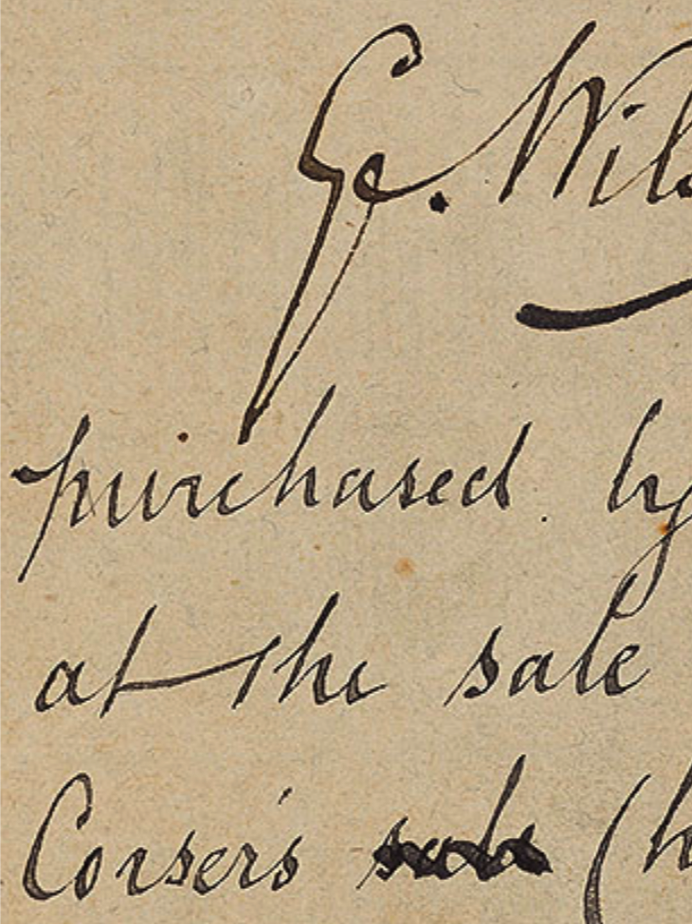 Ge. Wils
purchased by
at the sale
Corser's sale (h